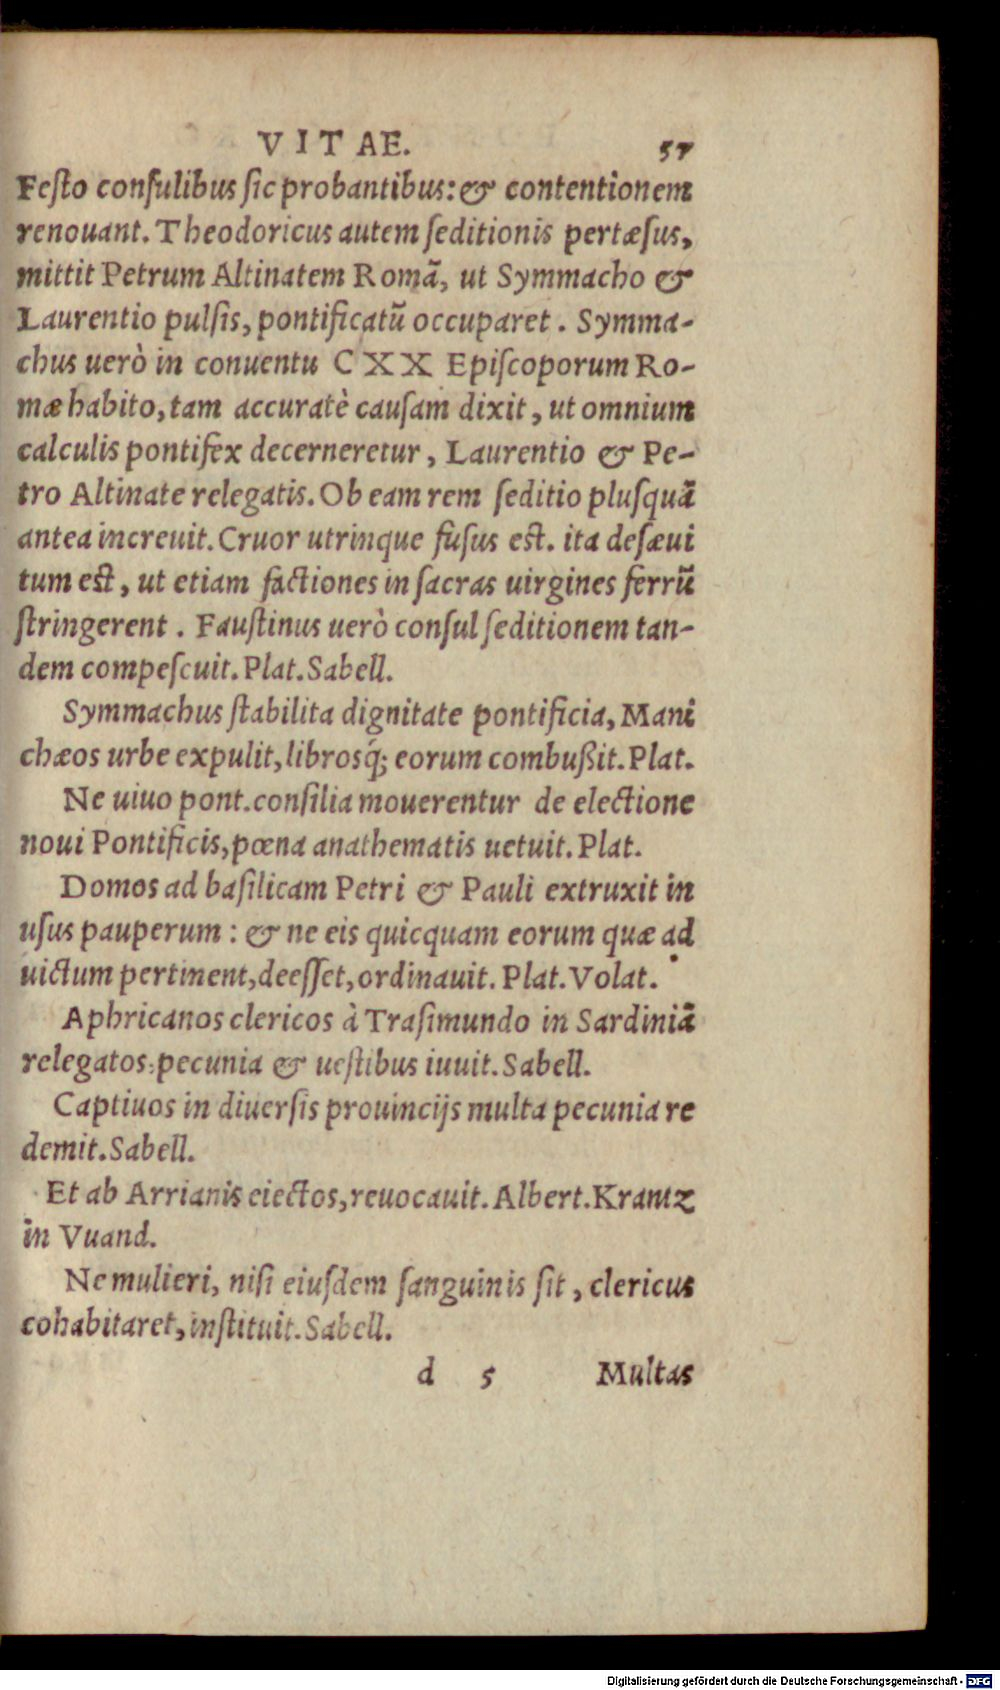 VITAE. 57
Festo consulibus sic probantibus: & contentionem
renouant. Theodoricus autem seditionis pertæsus,
mittit Petrum Altinatem Romã, ut Symmacho &
Laurentio pulsis, pontificatũ occuparet. Symma-
chus uerò in conuentu CXX Episcoporum Ro-
mæ habito, tam accuratè causam dixit, ut omnium
calculis pontifex decerneretur, Laurentio & Pe-
tro Altinate relegatis. Ob eam rem seditio plusquã
antea increuit. Cruor utrinque fusus est. ita desæui
tum est, ut etiam factiones in sacras uirgines ferrũ
stringerent. Faustinus uerò consul seditionem tan-
dem compescuit. Plat. Sabell.
Symmachus stabilita dignitate pontificia, Mani
chæos urbe expulit, librosq́; eorum combußit. Plat.
Ne uiuo pont. consilia mouerentur de electione
noui Pontificis, pœna anathematis uetuit. Plat.
Domos ad basilicam Petri & Pauli extruxit in
usus pauperum: & ne eis quicquam eorum quæ ad
uictum pertinent, deesset, ordinauit. Plat. Volat.
Aphricanos clericos à Trasimundo in Sardiniã
relegatos, pecunia & uestibus iuuit. Sabell.
Captiuos in diuersis prouincijs multa pecunia re
demit. Sabell.
Et ab Arrianis eiectos, reuocauit. Albert. Krantz
in Vuand.
Ne mulieri, nisi eiusdem sanguinis sit, clericus
cohabitaret, instituit. Sabell.
d 5 Multas
Digitalisierung gefördert durch die Deutsche Forschungsgemeinschaft - DFG